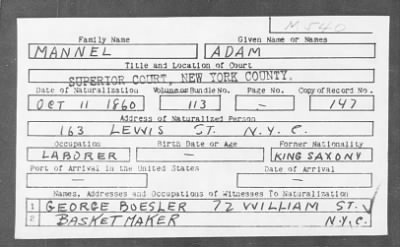 N 540
Family Name Given Name or Names
MANNEL ADAM
Title and Location of Court
SUPERIOR COURT, NEW YORK COUNTY.
Date of Naturalization Volume or Bundle No. Page No. Copy of Record No.
OCT 11 1860 113 — 147
Address of Naturalized Person
163 LEWIS ST. N.Y.C.
Occupation Birth Date or Age Former Nationality
LABORER — KING SAXONY
Port of Arrival in the United States Date of Arrival
— —
Names, Addresses and Occupations of Witnesses To Naturalization
1 GEORGE BOESLER 72 WILLIAM ST.
2 BASKET MAKER N.Y.C.